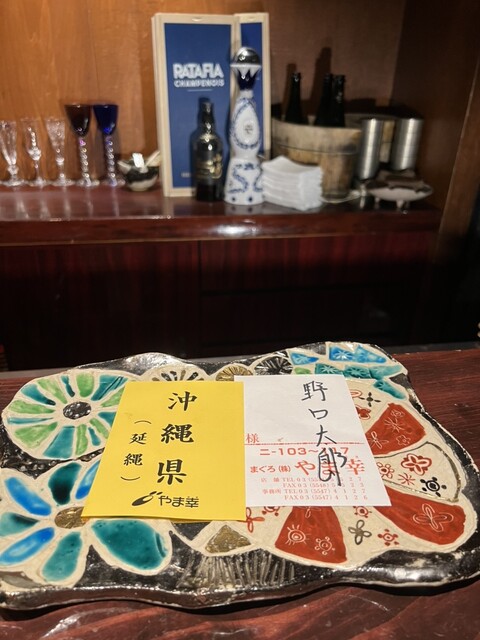 RATAFIA
CHAMPENOIS
沖縄県
(延縄)
やま幸
野口太郎
様
ニ-103~
まぐろ(株) やま幸